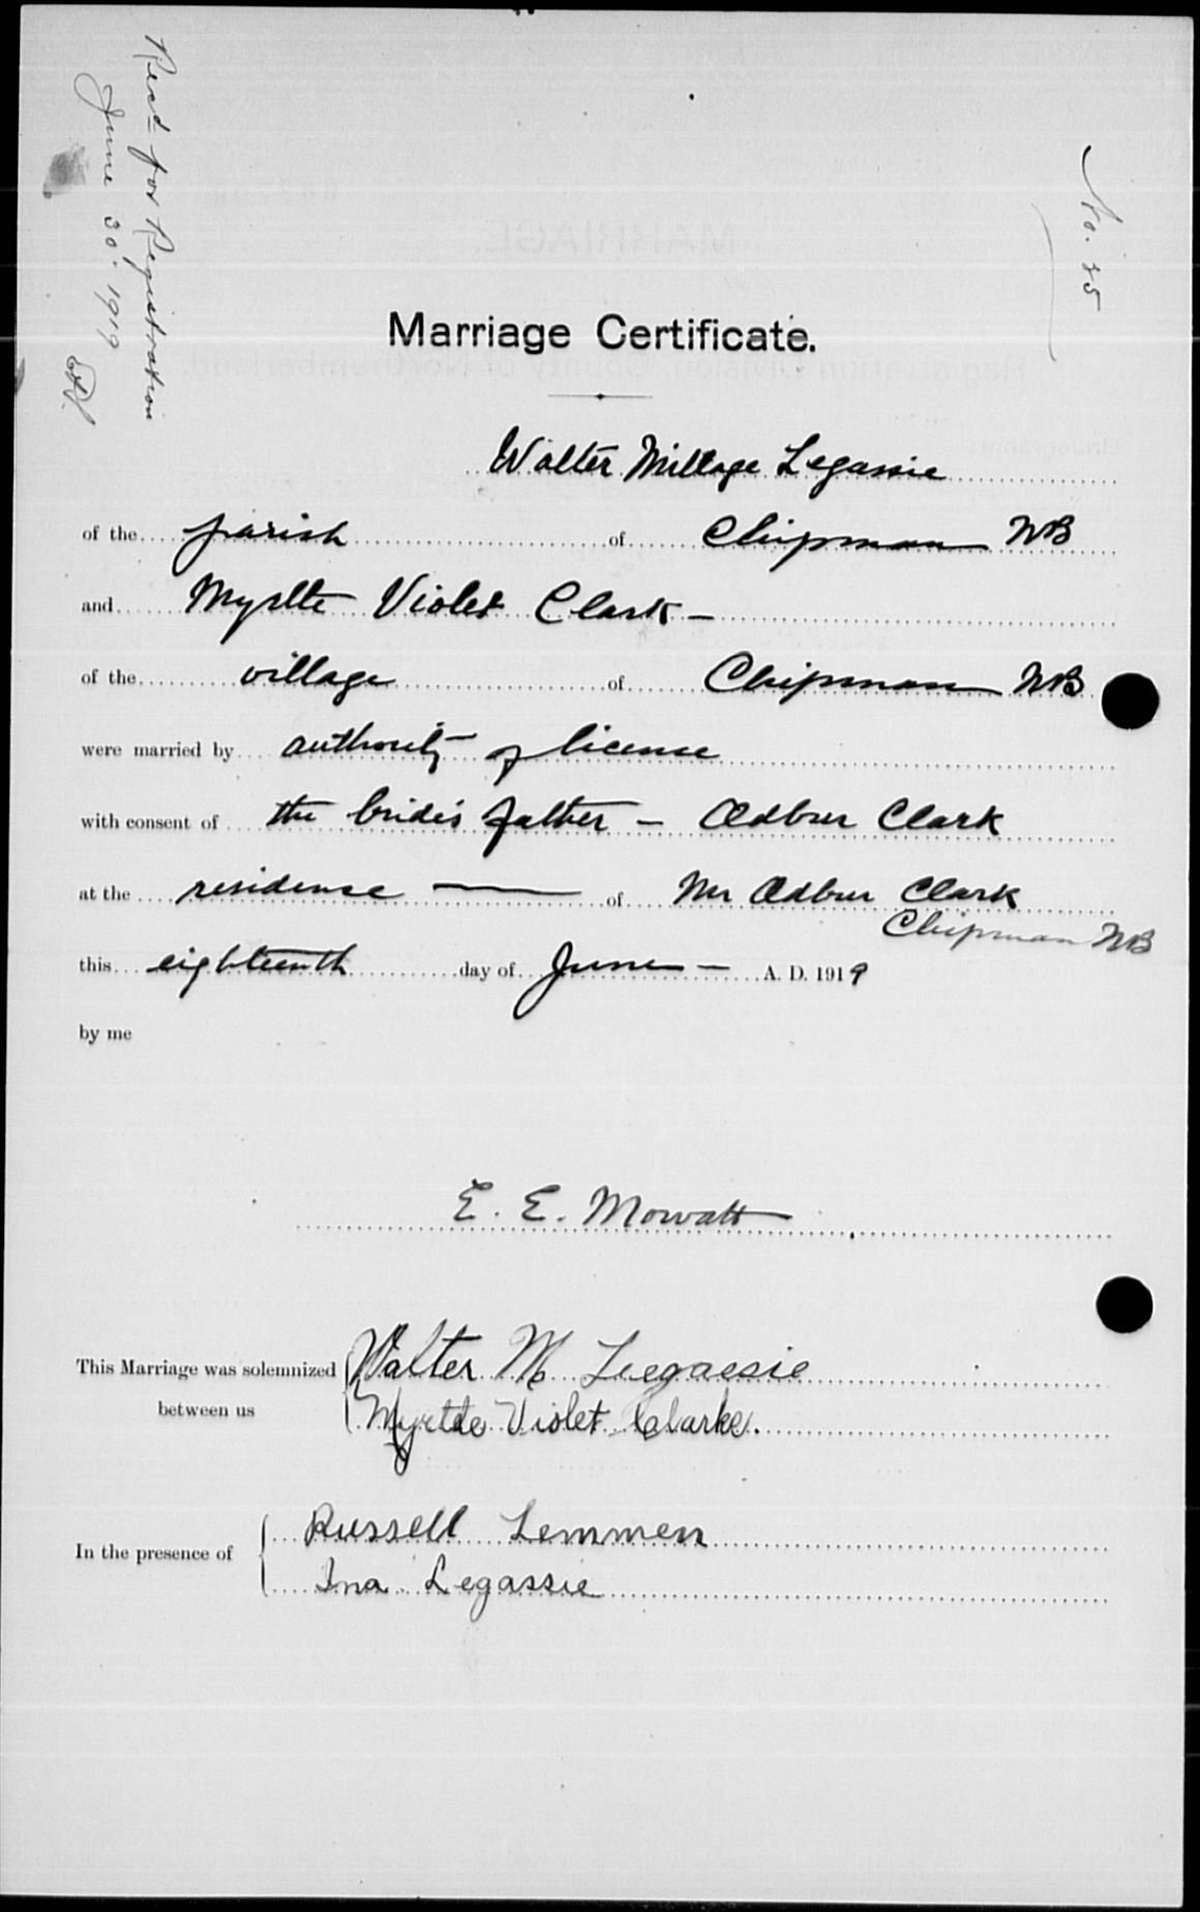 Recd for Registration
June 30 1919
No. 35
Marriage Certificate.
Walter Millage Legassie
of the parish of Chipman NB
and Myrtle Violet Clark -
of the village of Chipman NB
were married by authority of license
with consent of the bride's father - Odbur Clark
at the residence of Mr Odbur Clark
Chipman NB
this eighteenth day of June - A. D. 1919
by me
E. E. Mowatt
This Marriage was solemnized between us
Walter M Legassie
Myrtle Violet Clarke.
In the presence of
Russell Lemmen
Ina Legassie